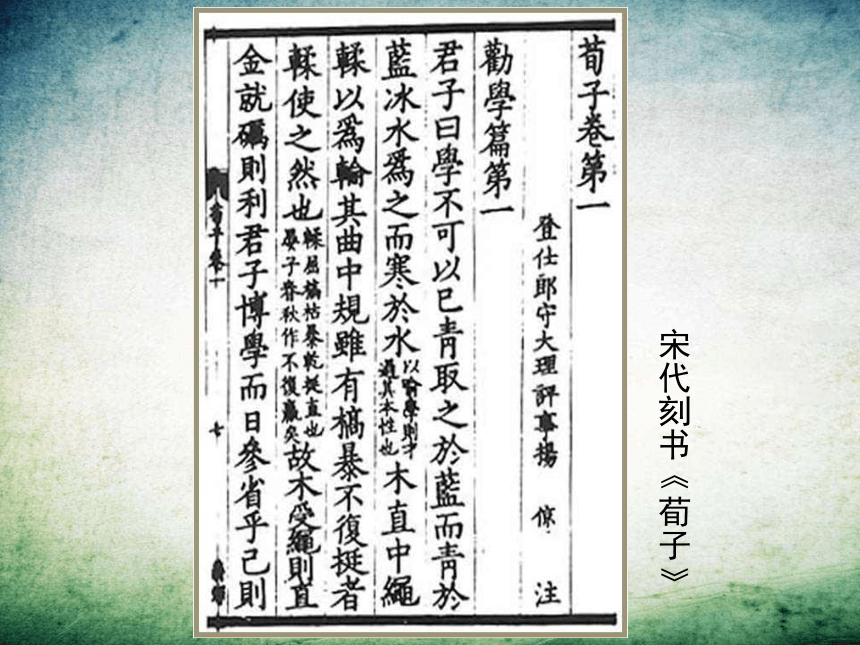 荀子卷第一
登仕郎守大理評事揚 倞 注
勸學篇第一
君子曰學不可以已青取之於藍而青於
藍冰水爲之而寒於水以喻學則才過其本性也木直中繩
輮以爲輪其曲中規雖有槁暴不復挺者
輮使之然也輮屈槁枯暴乾挺直也晏子春秋作不復羸矣故木受繩則直
金就礪則利君子博學而日參省乎己則
荀子卷一
七
宋代刻书《荀子》